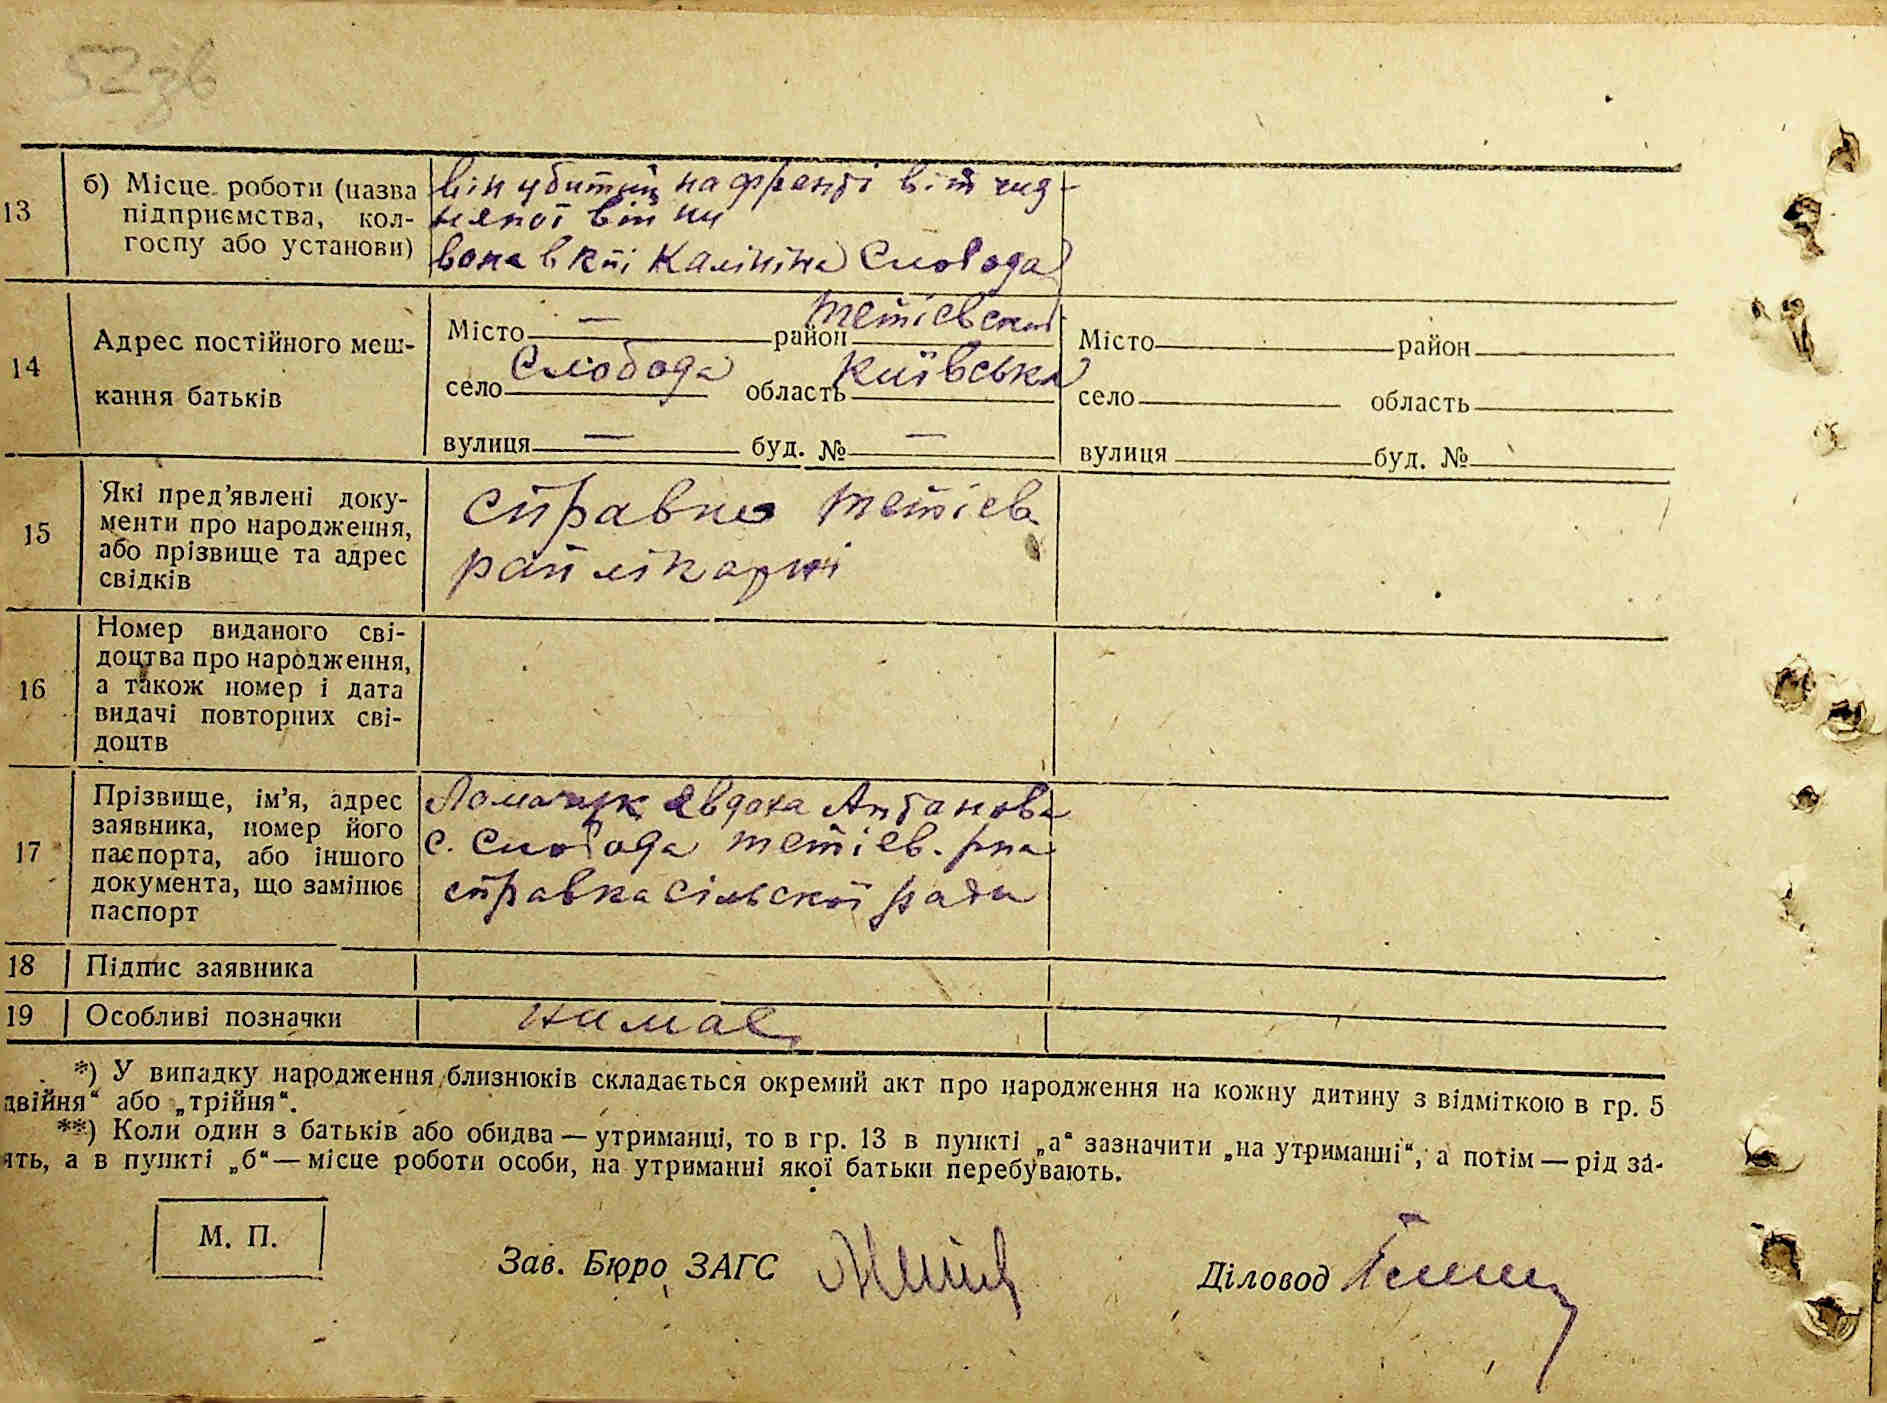 52зв
13
б) Місце роботи (назва
підприємства, кол-
госпу або установи)
він убитий на фронті вітчид-
няної війни
вона в к-пі Калініна Слобода
14
Адрес постійного меш-
кання батьків
Місто — район Тетіевский
село Слобода область Київська
вулиця — буд. № —
Місто район
село область
вулиця буд. №
15
Які пред’явлені доку-
менти про народження,
або прізвище та адрес
свідків
справка Тетіев.
райлікарні
16
Номер виданого сві-
доцтва про народження,
а також номер і дата
видачі повторних сві-
доцтв
17
Прізвище, ім’я, адрес
заявника, номер його
паспорта, або іншого
документа, що замінює
паспорт
Ломачук Явдоха Антанова
с. Слобода Тетіев. р-на
справка сільскої ради
18 Підпис заявника
19 Особливі позначки
нимае
*) У випадку народження близнюків складається окремий акт про народження на кожну дитину з відміткою в гр. 5
двійня“ або „трійня“.
**) Коли один з батьків або обидва — утриманці, то в гр. 13 в пункті „а“ зазначити „на утриманні“, а потім — рід за-
ять, а в пункті „б“ — місце роботи особи, на утриманні якої батьки перебувають.
М. П.
Зав. Бюро ЗАГС
Діловод